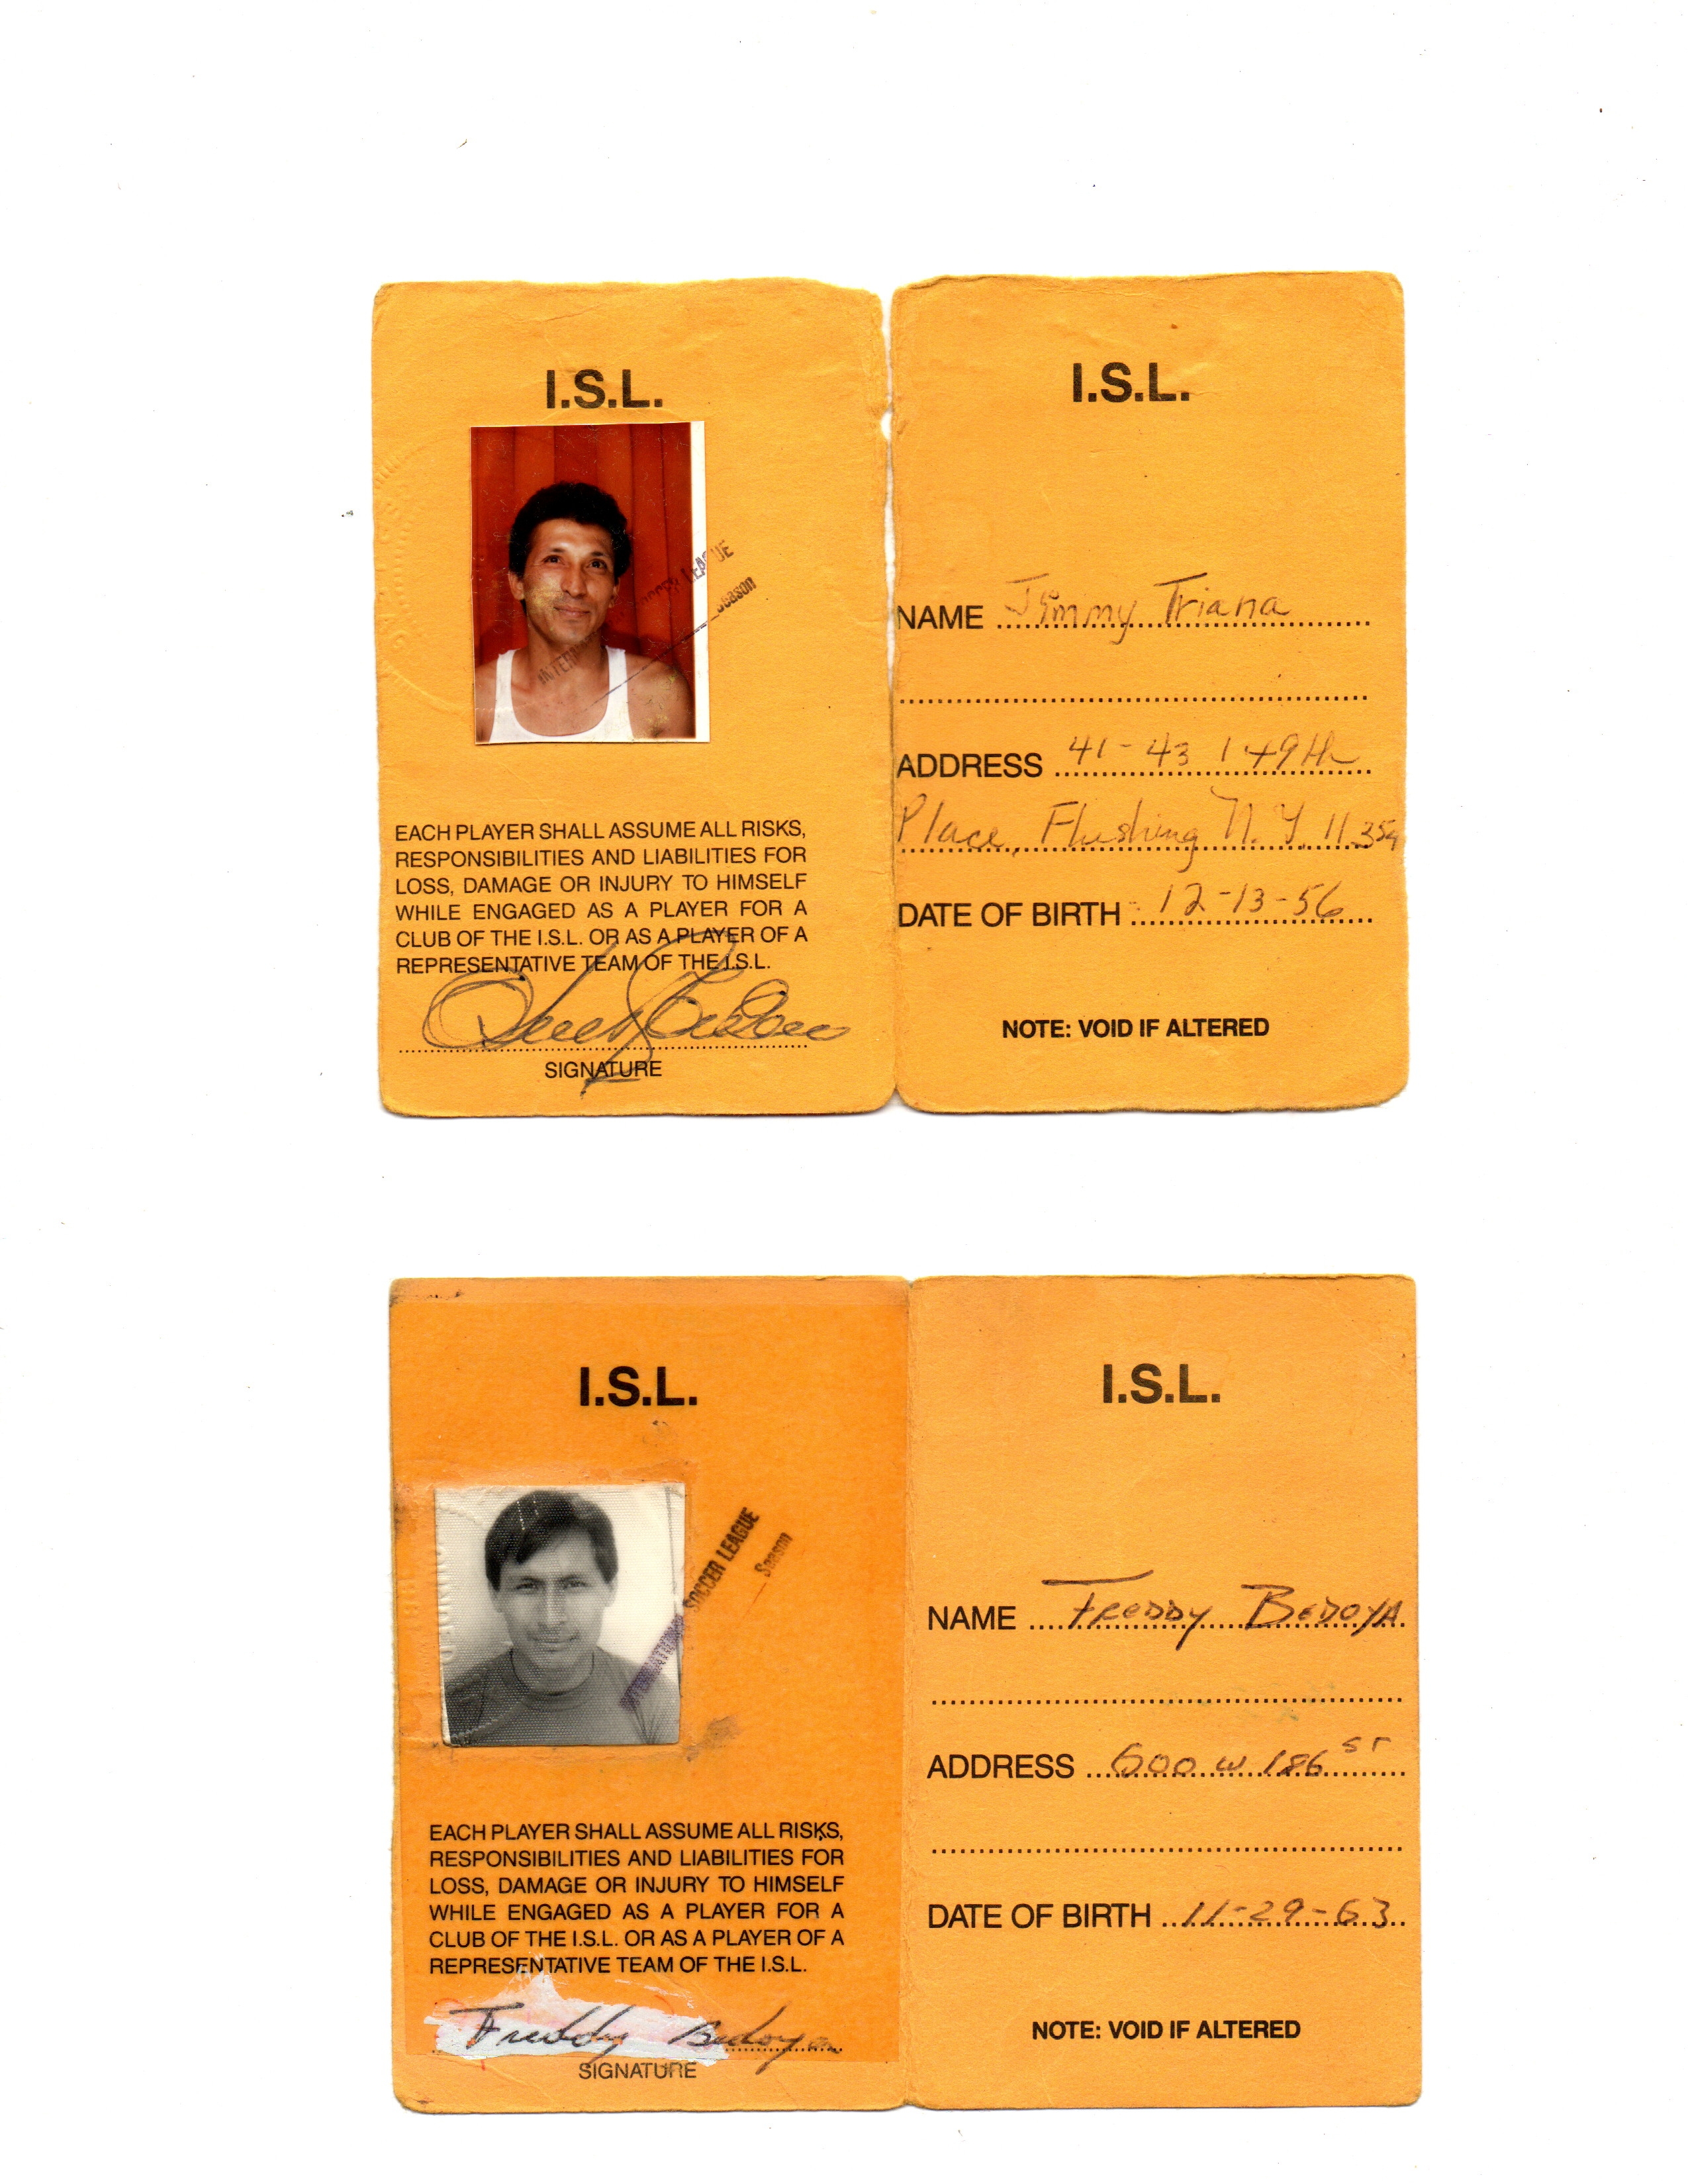 I.S.L.
SOCCER LEAGUE
Season
EACH PLAYER SHALL ASSUME ALL RISKS,
RESPONSIBILITIES AND LIABILITIES FOR
LOSS, DAMAGE OR INJURY TO HIMSELF
WHILE ENGAGED AS A PLAYER FOR A
CLUB OF THE I.S.L. OR AS A PLAYER OF A
REPRESENTATIVE TEAM OF THE I.S.L.
SIGNATURE
I.S.L.
NAME Jimmy Triana
ADDRESS 41-43 149th
Place, Flushing N.Y. 11354
DATE OF BIRTH 12-13-56
NOTE: VOID IF ALTERED
I.S.L.
INTERNATIONAL SOCCER LEAGUE
Season
EACH PLAYER SHALL ASSUME ALL RISKS,
RESPONSIBILITIES AND LIABILITIES FOR
LOSS, DAMAGE OR INJURY TO HIMSELF
WHILE ENGAGED AS A PLAYER FOR A
CLUB OF THE I.S.L. OR AS A PLAYER OF A
REPRESENTATIVE TEAM OF THE I.S.L.
Freddy Bedoya
SIGNATURE
I.S.L.
NAME FREDDY BEDOYA
ADDRESS 600 W 186 ST
DATE OF BIRTH 11-29-63
NOTE: VOID IF ALTERED